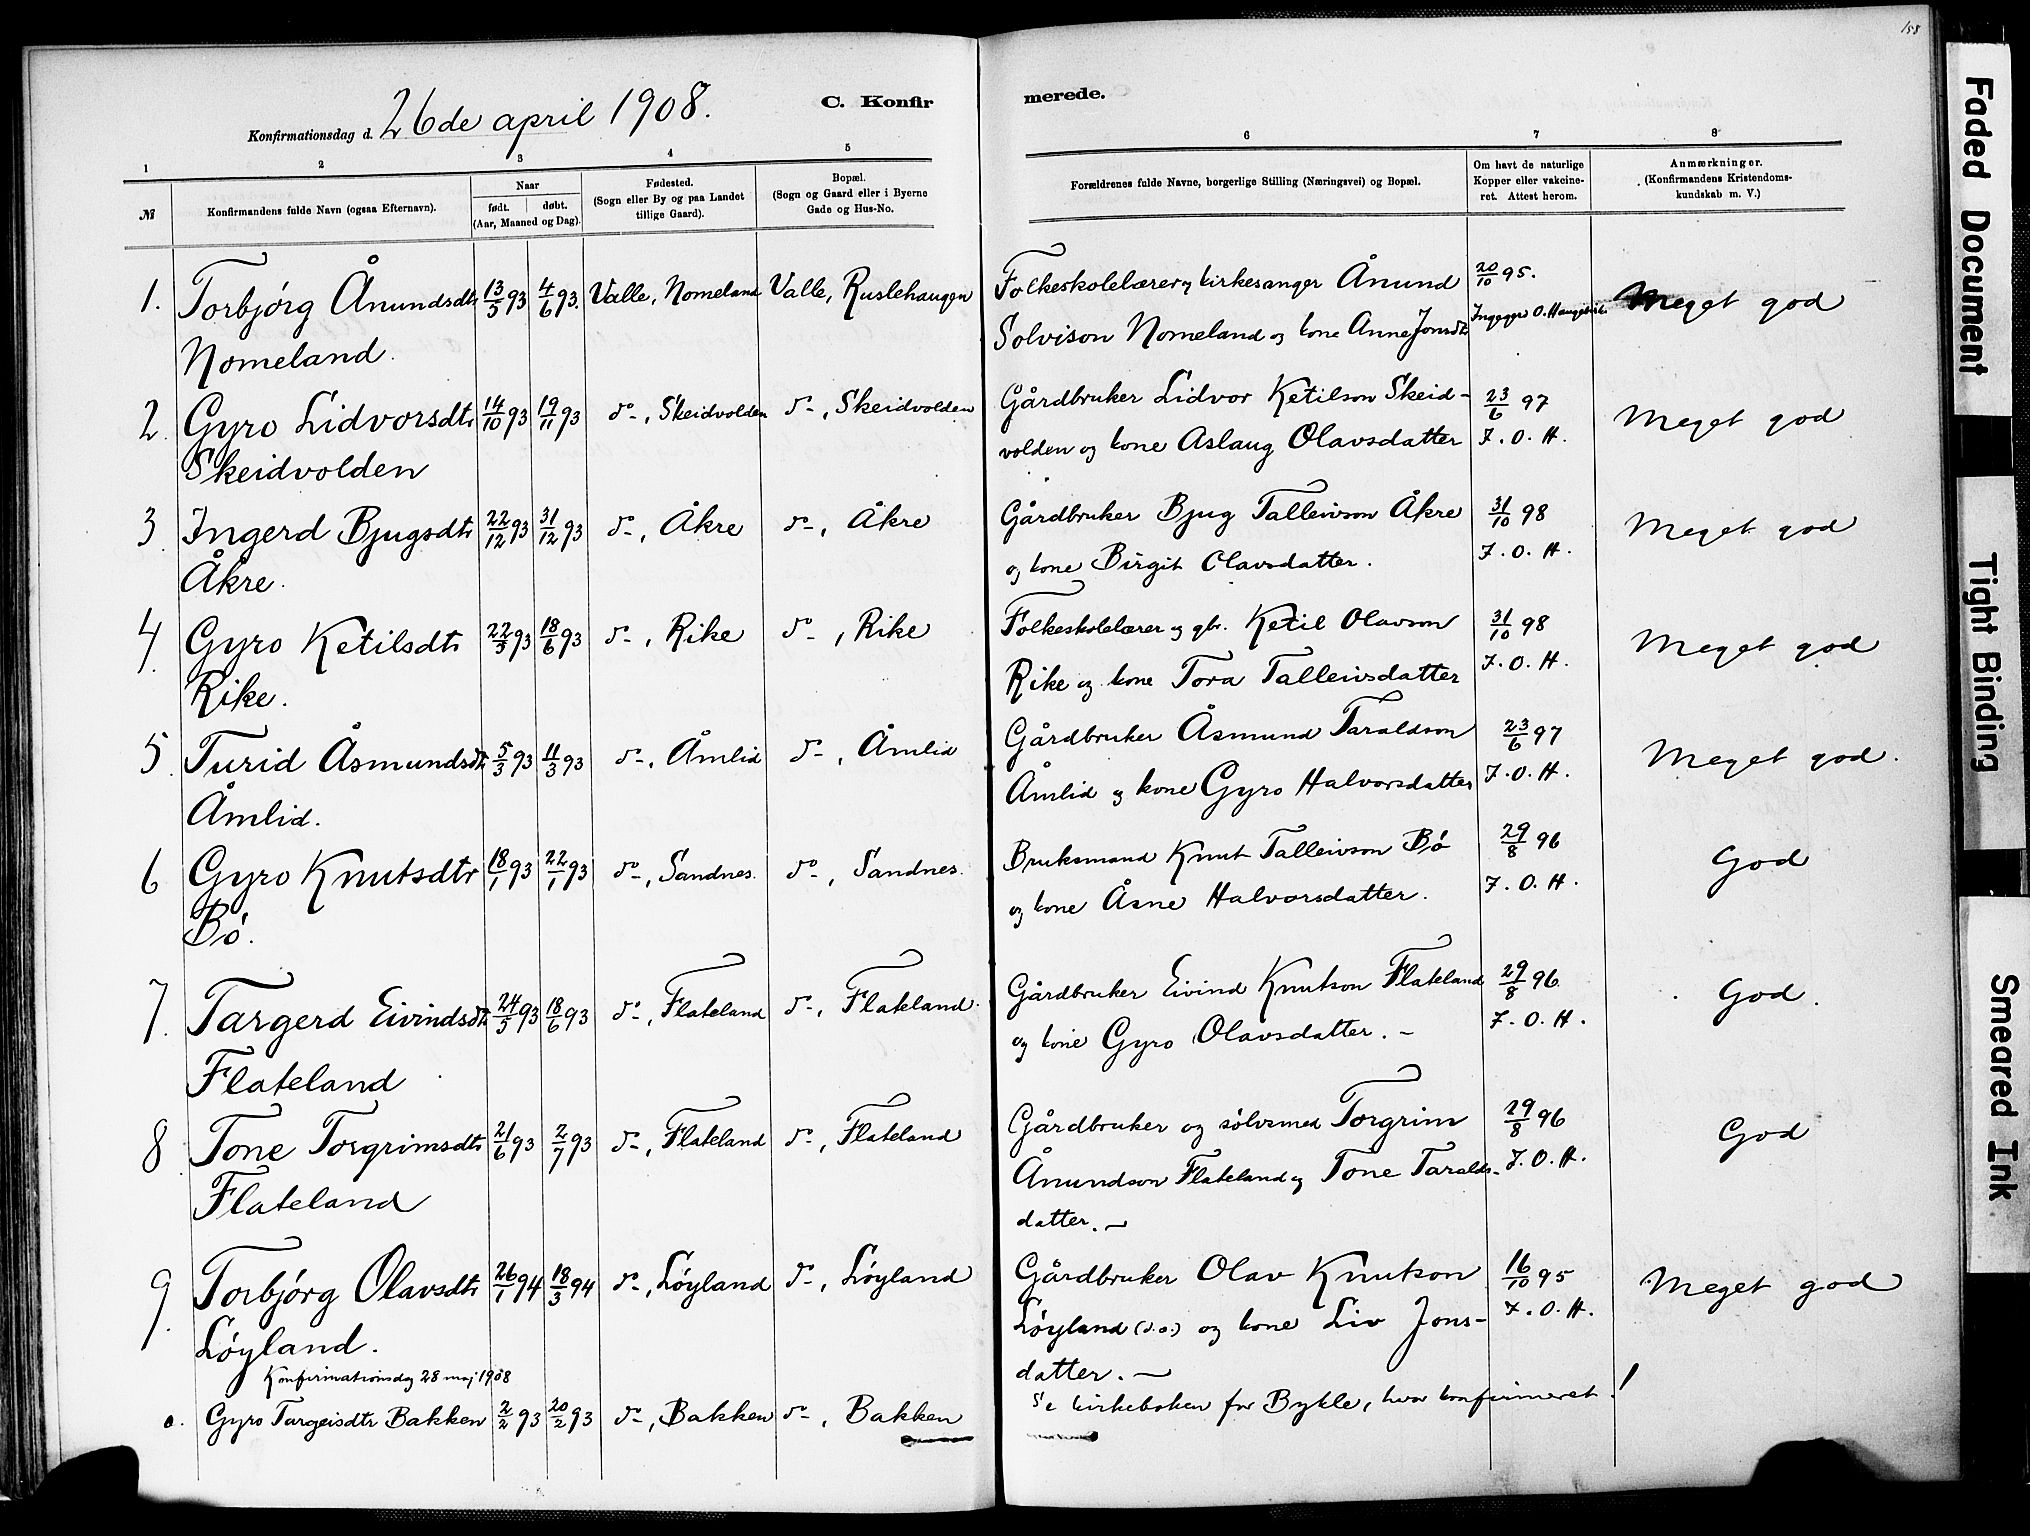 155
Konfirmationsdag d. 26de april 1908.
C. Konfirmerede.
1 2 3 4 5 6 7 8
№
Konfirmandens fulde Navn (ogsaa Efternavn).
Naar
født. døbt.
(Aar, Maaned og Dag).
Fødested.
(Sogn eller By og paa Landet
tillige Gaard).
Bopæl.
(Sogn og Gaard eller i Byerne
Gade og Hus-No.
Forældrenes fulde Navne, borgerlige Stilling (Næringsvei) og Bopæl.
Om havt de naturlige
Kopper eller vakcine-
ret. Attest herom.
Anmærkninger.
(Konfirmandens Kristendoms-
kundskab m. V.)
1. Torbjørg Ånundsdtr 13/5 93 4/6 93. Valle, Nomeland Valle, Ruslehaugen Folkeskolelærer og kirkesanger Ånund 20/10 95. Meget god
Nomeland. Solvison Nomeland og kone Anne Jonsdtr Ingegjer O. Haugebirk.
2. Gyro Lidvorsdtr 14/10 93 19/11 93 do-, Skeidvolden do-, Skeidvolden Gårdbruker Lidvor Ketilson Skeid- 23/6 97 Meget god
Skeidvolden volden og kone Aslaug Olavsdatter J. O. H.
3. Ingerd Bjugsdtr 22/12 93 31/12 93 do-, Åkre do-, Åkre Gårdbruker Bjug Talleivson Åkre 31/10 98 Meget god
Åkre. og kone Birgit Olavsdatter. J. O. H.
4. Gyro Ketilsdtr 22/5 93 18/6 93 do-, Rike do-, Rike Folkeskolelærer og gbr. Ketil Olavson 31/10 98 Meget god
Rike. Rike og kone Tora Talleivsdatter J. O. H.
5. Turid Åsmundsdtr 5/3 93 11/3 93 do-, Åmlid do-, Åmlid Gårdbruker Åsmund Taraldson 23/6 97 Meget god.
Åmlid. Åmlid og kone Gyro Halvorsdatter J. O. H.
6 Gyro Knutsdtr 18/1 93 22/1 93 do-, Sandnes. do-, Sandnes. Bruksmand Knut Talleivson Bø 29/8 96 God
Bø. og kone Åsne Halvorsdatter. J. O. H.
7. Targerd Eivindsdtr 24/5 93 18/6 93 do-, Flateland do-, Flateland. Gårdbruker Eivind Knutson Flateland 29/8 96 God.
Flateland og kone Gyro Olavsdatter. - J. O. H.
8 Tone Torgrimsdtr 21/6 93 2/7 93 do-, Flateland do-, Flateland Gårdbruker og sølvsmed Torgrim 29/8 96 God
Flateland Ånundson Flateland og Tone Taralds- J. O. H.
datter. -
9. Torbjørg Olavsdtr 26/1 94 18/3 94 do-, Løyland do-, Løyland Gårdbruker Olav Knutson 16/10 95 Meget god
Løyland. Løyland (d.o.) og kone Liv Jons- J. O. H.
datter. -
Konfirmationsdag 28 maj 1908
o. Gyro Targeisdtr Bakken 2/2 93 20/2 93 do-, Bakken do-, Bakken Se kirkeboken for Bykle, hvor konfirmeret!
Faded Document
Tight Binding
Smeared Ink